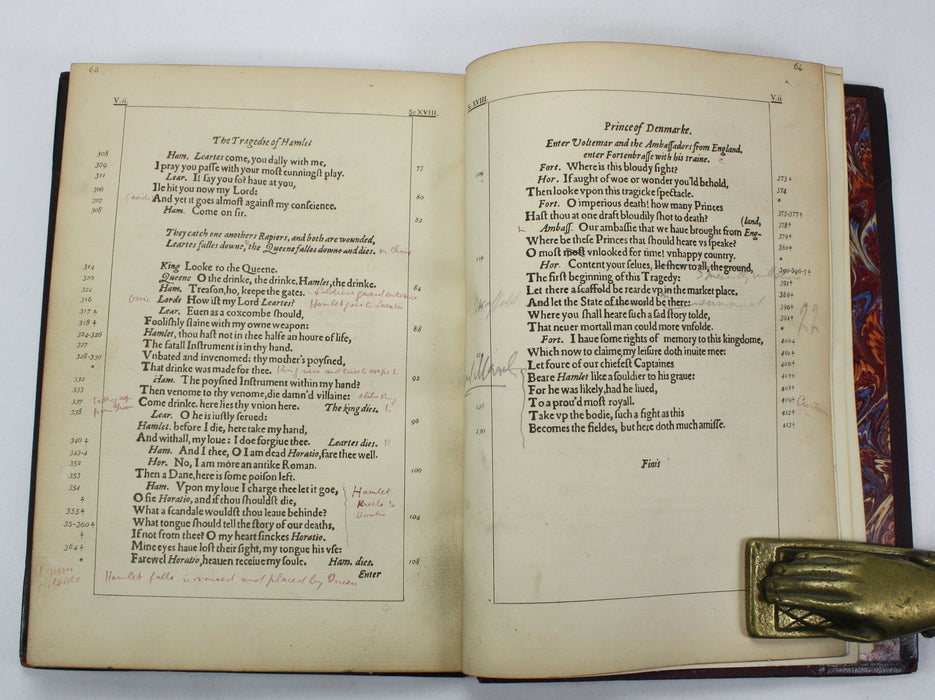 63
V.ii.
Sc XVIII.
The Tragedie of Hamlet
308 Ham. Leartes come, you dally with me,
309 I pray you passe with your most cunningst play. 77
311 Lear. I! say you so? haue at you,
300 Ile hit you now my Lord:
307 And yet it goes almost against my conscience. 80
308 Ham. Come on sir.
82
They catch one anothers Rapiers, and both are wounded,
Leartes falles downe, the Queene falles downe and dies.
314 King Looke to the Queene.
320 Queene O the drinke, the drinke, Hamlet, the drinke.
322 Ham. Treason, ho, keepe the gates. 84
316 Lords How ist my Lord Leartes?
317+ Lear. Euen as a coxcombe should,
318+ Foolishly slaine with my owne weapon: 88
324-326 Hamlet, thou hast not in thee halfe an houre of life,
327 The fatall Instrument is in thy hand.
328-330 Vnbated and invenomed: thy mother's poysned,
* That drinke was made for thee.
332 Ham. The poysned Instrument within my hand? 92
333 Then venome to thy venome, die damn'd villaine:
337 Come drinke, here lies thy vnion here. The king dies.
338 Lear. O he is iustly serued:
Hamlet, before I die, here take my hand, 96
340+ And withall, my loue: I doe forgiue thee. Leartes dies.
343-4 Ham. And I thee, O I am dead Horatio, fare thee well.
352 Hor. No, I am more an antike Roman,
353 Then a Dane, here is some poison left. 100
354 Ham. Vpon my loue I charge thee let it goe,
+ O fie Horatio, and if thou shouldst die,
355+ What a scandale wouldst thou leaue behinde?
35-360+ What tongue should tell the story of our deaths, 104
+ If not from thee? O my heart sinckes Horatio.
364+ Mine eyes haue lost their sight, my tongue his vse:
* Farewel Horatio, heauen receiue my soule. Ham. dies. 108
Enter
Hamlet
Kneels to
Horatio
Hamlet falls is raised and placed by Queen
64
Sc XVIII.
V.ii
Prince of Denmarke.
Enter Voltemar and the Ambassadors from England.
enter Fortenbrasse with his traine.
109 Fort. Where is this bloudy sight?
Hor. If aught of woe or wonder you'ld behold, 373+
Then looke vpon this tragicke spectacle. 374
Fort. O imperious death! how many Princes *
Hast thou at one draft bloudily shot to death? (land, 375-377+
Ambass. Our ambassie that we haue brought from Eng- 378+
Where be these Princes that should heare vs speake? 380+
O most most vnlooked for time! vnhappy country. *
114 Hor. Content your selues, Ile shew to all, the ground, 390-396-7+
The first beginning of this Tragedy: 391+
Let there a scaffold be rearde vp in the market place, 389+
And let the State of the world be there: 390+
Where you shall heare such a sad story tolde, 391+
That neuer mortall man could more vnfolde. *
Fort. I haue some rights of memory to this kingdome, 400+
Which now to claime, my leisure doth inuite mee: 401+
Let foure of our chiefest Captaines 406+
Beare Hamlet like a souldier to his graue: 407+
For he was likely, had he liued, 408+
To a prou'd most royall. 409+
Take vp the bodie, such a sight as this 412+
130 Becomes the fieldes, but here doth much amisse. 413+
22
Finis